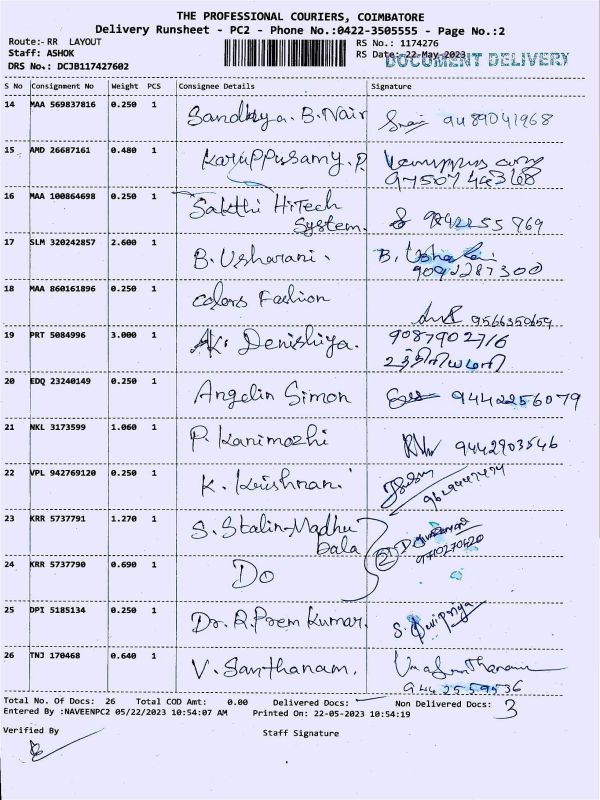 THE PROFESSIONAL COURIERS, COIMBATORE
Delivery Runsheet - PC2 - Phone No.:0422-3505555 - Page No.:2
Route:- RR LAYOUT
Staff: ASHOK
DRS No.: DCJB117427602
RS No.: 1174276
RS Date: 22-May-2023
DOCUMENT DELIVERY
S No Consignment No Weight PCS Consignee Details Signature
14 MAA 569837816 0.250 1 Sandhya. B. Nair 9489041968
15 AMD 26687161 0.480 1 Karuppusamy. P.
9750744368
16 MAA 100864698 0.250 1 Sakthi HiTech
System. 9842255869
17 SLM 320242857 2.600 1 B. Usharani. B. Usharani
9092287300
18 MAA 860161896 0.250 1 Colors Fashion
9566350659
19 PRT 5084996 3.000 1 AK. Denishiya. 9087902716
20 EDQ 23240149 0.250 1 Angelin Simon 9442256079
21 NKL 3173599 1.060 1 P. Kanimozhi 9442903546
22 VPL 942769120 0.250 1 K. Krishnan.
23 KRR 5737791 1.270 1 S. Stalin Madhu
bala
9710270620
24 KRR 5737790 0.690 1 Do 2
25 DPI 5185134 0.250 1 Dr. R. Prem Kumar. S. Devipriya
26 TNJ 170468 0.640 1 V. Santhanam.
9442559536
Total No. Of Docs: 26 Total COD Amt: 0.00 Delivered Docs: Non Delivered Docs: 3
Entered By :NAVEENPC2 05/22/2023 10:54:07 AM Printed On: 22-05-2023 10:54:19
Verified By Staff Signature